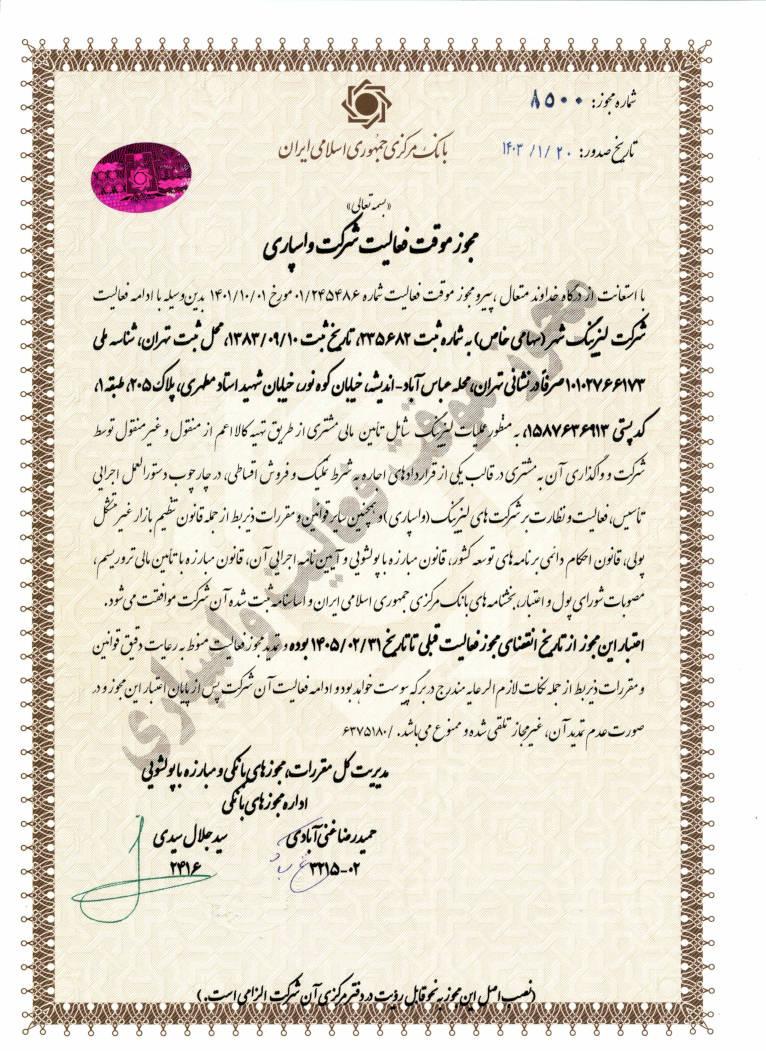 شماره مجوز: ۸۵۰۰
تاریخ صدور: ۱۴۰۳/۱/۲۰
بانک مرکزی جمهوری اسلامی ایران
«بسمه تعالی»
مجوز موقت فعالیت شرکت واسپاری
با استعانت از درگاه خداوند متعال، پیرو مجوز موقت فعالیت شماره ۰۱/۲۴۵۴۸۶ مورخ ۱۴۰۱/۱۰/۰۱ بدین‌وسیله با ادامه فعالیت
شرکت لیزینگ شهر (سهامی خاص) به شماره ثبت ۲۳۵۶۸۲، تاریخ ثبت ۱۳۸۳/۰۹/۱۰، محل ثبت تهران، شناسه ملی
۱۰۱۰۲۷۶۶۱۷۳ صرفا در نشانی تهران، محله عباس آباد-اندیشه، خیابان کوه نور، خیابان شهید استاد مطهری، پلاک ۲۰۵، طبقه ۱،
کد پستی ۱۵۸۷۶۳۶۹۱۳، به منظور عملیات لیزینگ شامل تأمین مالی مشتری از طریق تهیه کالا اعم از منقول و غیرمنقول توسط
شرکت و واگذاری آن به مشتری در قالب یکی از قراردادهای اجاره به شرط تملیک و فروش اقساطی، در چارچوب دستورالعمل اجرایی
تأسیس، فعالیت و نظارت بر شرکت‌های لیزینگ (واسپاری) و همچنین سایر قوانین و مقررات ذیربط از جمله قانون تنظیم بازار غیرمتشکل
پولی، قانون احکام دائمی برنامه‌های توسعه کشور، قانون مبارزه با پولشویی و آیین نامه اجرایی آن، قانون مبارزه با تأمین مالی تروریسم،
مصوبات شورای پول و اعتبار، بخشنامه‌های بانک مرکزی جمهوری اسلامی ایران و اساسنامه ثبت شده آن شرکت موافقت می‌شود.
اعتبار این مجوز از تاریخ انقضای مجوز فعالیت قبلی تا تاریخ ۱۴۰۵/۰۲/۳۱ بوده و تمدید مجوز فعالیت منوط به رعایت دقیق قوانین
و مقررات ذیربط از جمله نکات لازم‌الرعایه مندرج در برگه پیوست خواهد بود و ادامه فعالیت آن شرکت پس از پایان اعتبار این مجوز و در
صورت عدم تمدید آن، غیرمجاز تلقی شده و ممنوع می‌باشد. /۶۳۷۵۱۸۰
مجوز موقت فعالیت واسپاری
مدیریت کل مقررات، مجوزهای بانکی و مبارزه با پولشویی
اداره مجوزهای بانکی
حمیدرضا غنی آبادی سید جلال سیدی
۳۲۱۵-۰۲ ۲۴۱۶
(نصب اصل این مجوز به نحو قابل رؤیت در دفتر مرکزی آن شرکت الزامی است.)